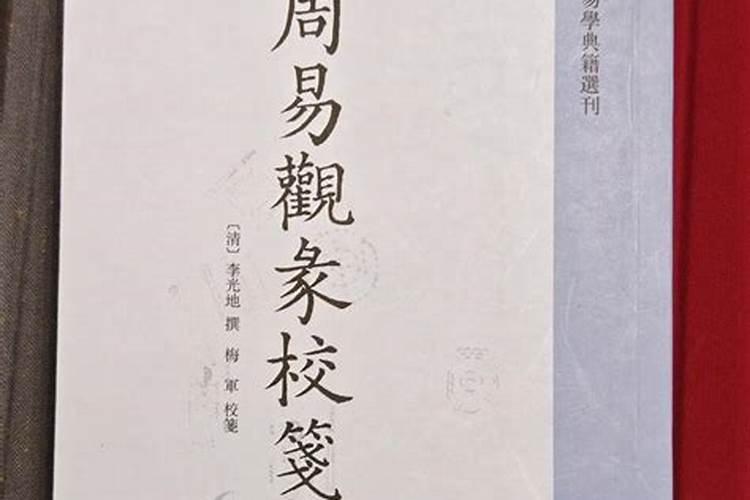 易學典籍選刊
周易觀彖校箋
〔清〕李光地 撰 梅軍 校箋